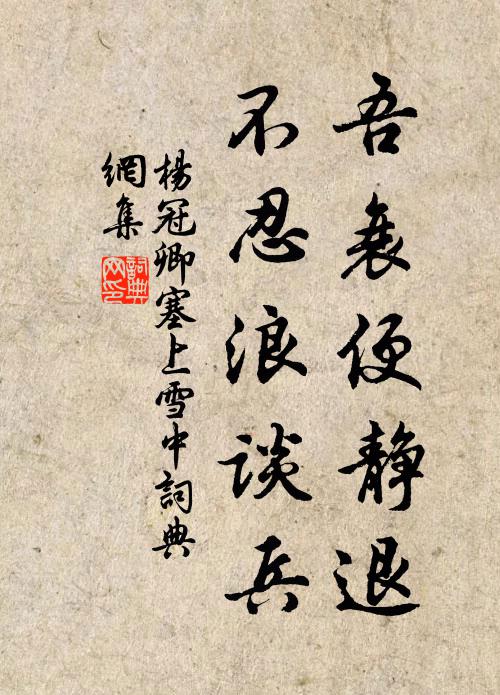 吾衰便静退
不忍浪谈兵
楊冠卿塞上雪中詞典
網集
詞典
网印